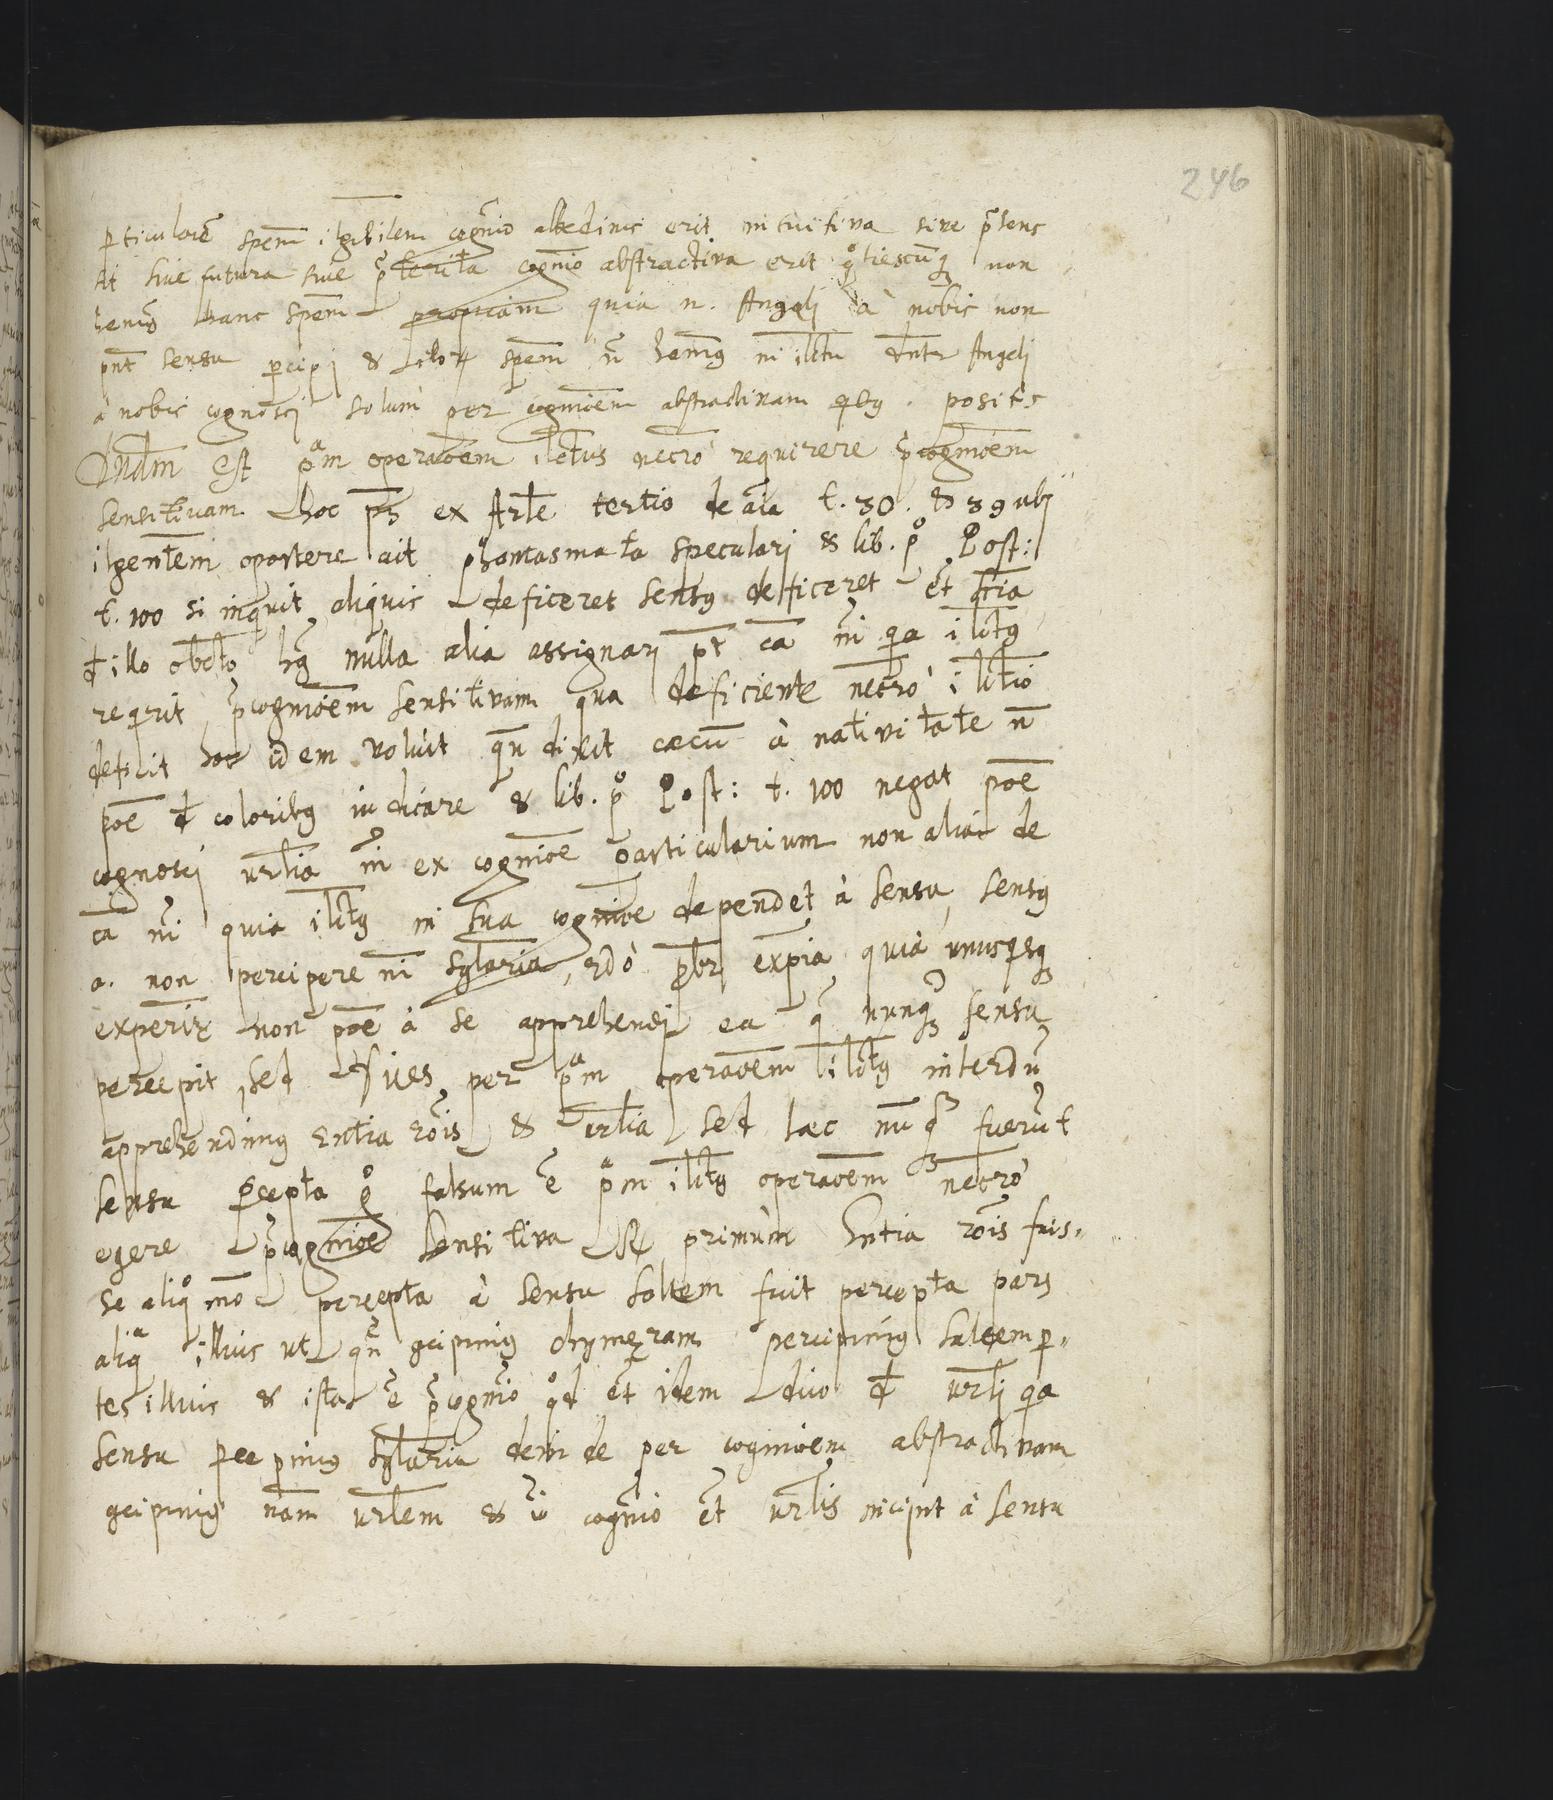 246
perticularē spem̄ ilgibilem cognio albedinis erit intuitiva sive p̄sens
sit sive futura sive p̄terita cognio abstractiva erit qͦtiescūq non
hem̄ꝰ hanc spem̄ propriam quia n. Angeli à nobis non
pnt sensu percipi & spem̄ n̄ hem̄ꝰ in ilctu Angeli
à nobis cognosci solum per cognioem abstractivam posit
Dndm̄ est pᵃm operaoem ilctus necrō requirere p̄cognioem
sensitivam hoc ps ex Arle tertio de aīa t. 30. & 39 ubi
ilgentem oportere ait phantasmata speculari & lib. pͦ Post:
t. 100 si inquit aliquis deficeret sensꝰ deficeret et scīa
d illo obcto nulla alia assignari pt cā ni qa ilctꝰ
reqrit p̄cognioem sensitivam qua deficiente necrō ilctio
deficit hoc idem voluit qn̄ dixit cæcū à nativitate n̄
poē d coloribꝰ iudicare & lib. pͦ Post: t. 100 negat poē
cognosci urlia ni ex cognioe particularium non alia de
cā ni quia ilctꝰ in sua cognioe dependet à sensu, sensꝰ
a. non percipere ni sglaria, 2dò pbr exp̄ia quia unusqsq
experir non poē à se apprehendi ea q̄ nunq sensu
percepit, sed per pᵃm operaoem ilctꝰ interdū
apprehendimꝰ Entia rōis & urlia sed hæc nūq fuerūt
sensu percepta gͦ falsum ē pᵃm ilctꝰ operaoem necrō
egere p̄cognioe sensitiva primùm Entia rōis fuis-
se aliqͦ mō percepta à sensu saltem fuit percepta pars
aliqᵃ illius ut qn̄ gcipimꝰ chymeram percipimꝰ saltem par-
tes illius & ista ē p̄cognio qͦd et idem dico d urli qa
sensu percipimꝰ sglaria deinde per cognioem abstractivam
gcipimꝰ nām urlem & iō cognio et urlis incipit à sensu